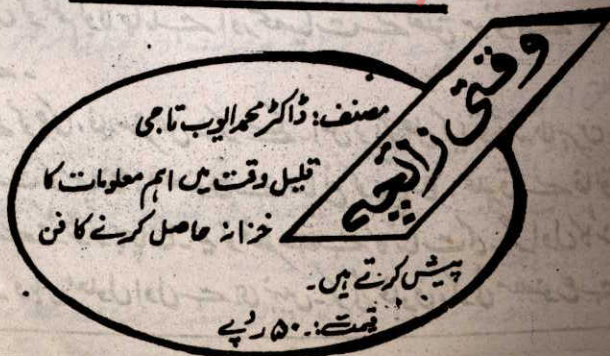 وقتی زائچہ
مصنف: ڈاکٹر محمد ایوب تاجی
قلیل وقت میں اہم معلومات کا
خزانہ حاصل کرنے کا فن
پیش کرتے ہیں۔
قیمت:۔ ۵۰ روپے